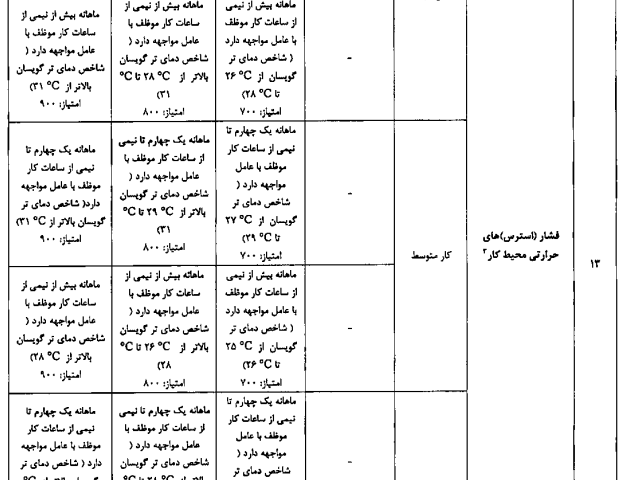 ماهانه بیش از نیمی
از ساعات کار موظف
با عامل مواجهه دارد
( شاخص دمای تر
گویسان از ۲۶ °C
تا ۲۸ °C)
امتیاز: ۷۰۰
ماهانه بیش از نیمی از
ساعات کار موظف با
عامل مواجهه دارد (
شاخص دمای تر گویسان
بالاتر از ۲۸ °C تا °C
۳۱)
امتیاز: ۸۰۰
ماهانه بیش از نیمی از
ساعات کار موظف با
عامل مواجهه دارد (
شاخص دمای تر گویسان
بالاتر از ۳۱ °C)
امتیاز: ۹۰۰
-
۱۳
فشار (استرس)های
حرارتی محیط کار۲
کار متوسط
-
ماهانه یک چهارم تا
نیمی از ساعات کار
موظف با عامل
مواجهه دارد (
شاخص دمای تر
گویسان از ۲۷ °C
تا ۲۹ °C)
امتیاز: ۷۰۰
ماهانه یک چهارم تا نیمی
از ساعات کار موظف با
عامل مواجهه دارد (
شاخص دمای تر گویسان
بالاتر از ۲۹ °C تا °C
۳۱)
امتیاز: ۸۰۰
ماهانه یک چهارم تا
نیمی از ساعات کار
موظف با عامل مواجهه
دارد( شاخص دمای تر
گویسان بالاتر از ۳۱ °C)
امتیاز: ۹۰۰
-
ماهانه بیش از نیمی
از ساعات کار موظف
با عامل مواجهه دارد
( شاخص دمای تر
گویسان از ۲۵ °C
تا ۲۶ °C)
امتیاز: ۷۰۰
ماهانه بیش از نیمی از
ساعات کار موظف با
عامل مواجهه دارد (
شاخص دمای تر گویسان
بالاتر از ۲۶ °C تا °C
۲۸)
امتیاز: ۸۰۰
ماهانه بیش از نیمی از
ساعات کار موظف با
عامل مواجهه دارد (
شاخص دمای تر گویسان
بالاتر از ۲۸ °C)
امتیاز: ۹۰۰
-
ماهانه یک چهارم تا
نیمی از ساعات کار
موظف با عامل
مواجهه دارد (
شاخص دمای تر
ماهانه یک چهارم تا نیمی
از ساعات کار موظف با
عامل مواجهه دارد (
شاخص دمای تر گویسان
ماهانه یک چهارم تا
نیمی از ساعات کار
موظف با عامل مواجهه
دارد ( شاخص دمای تر